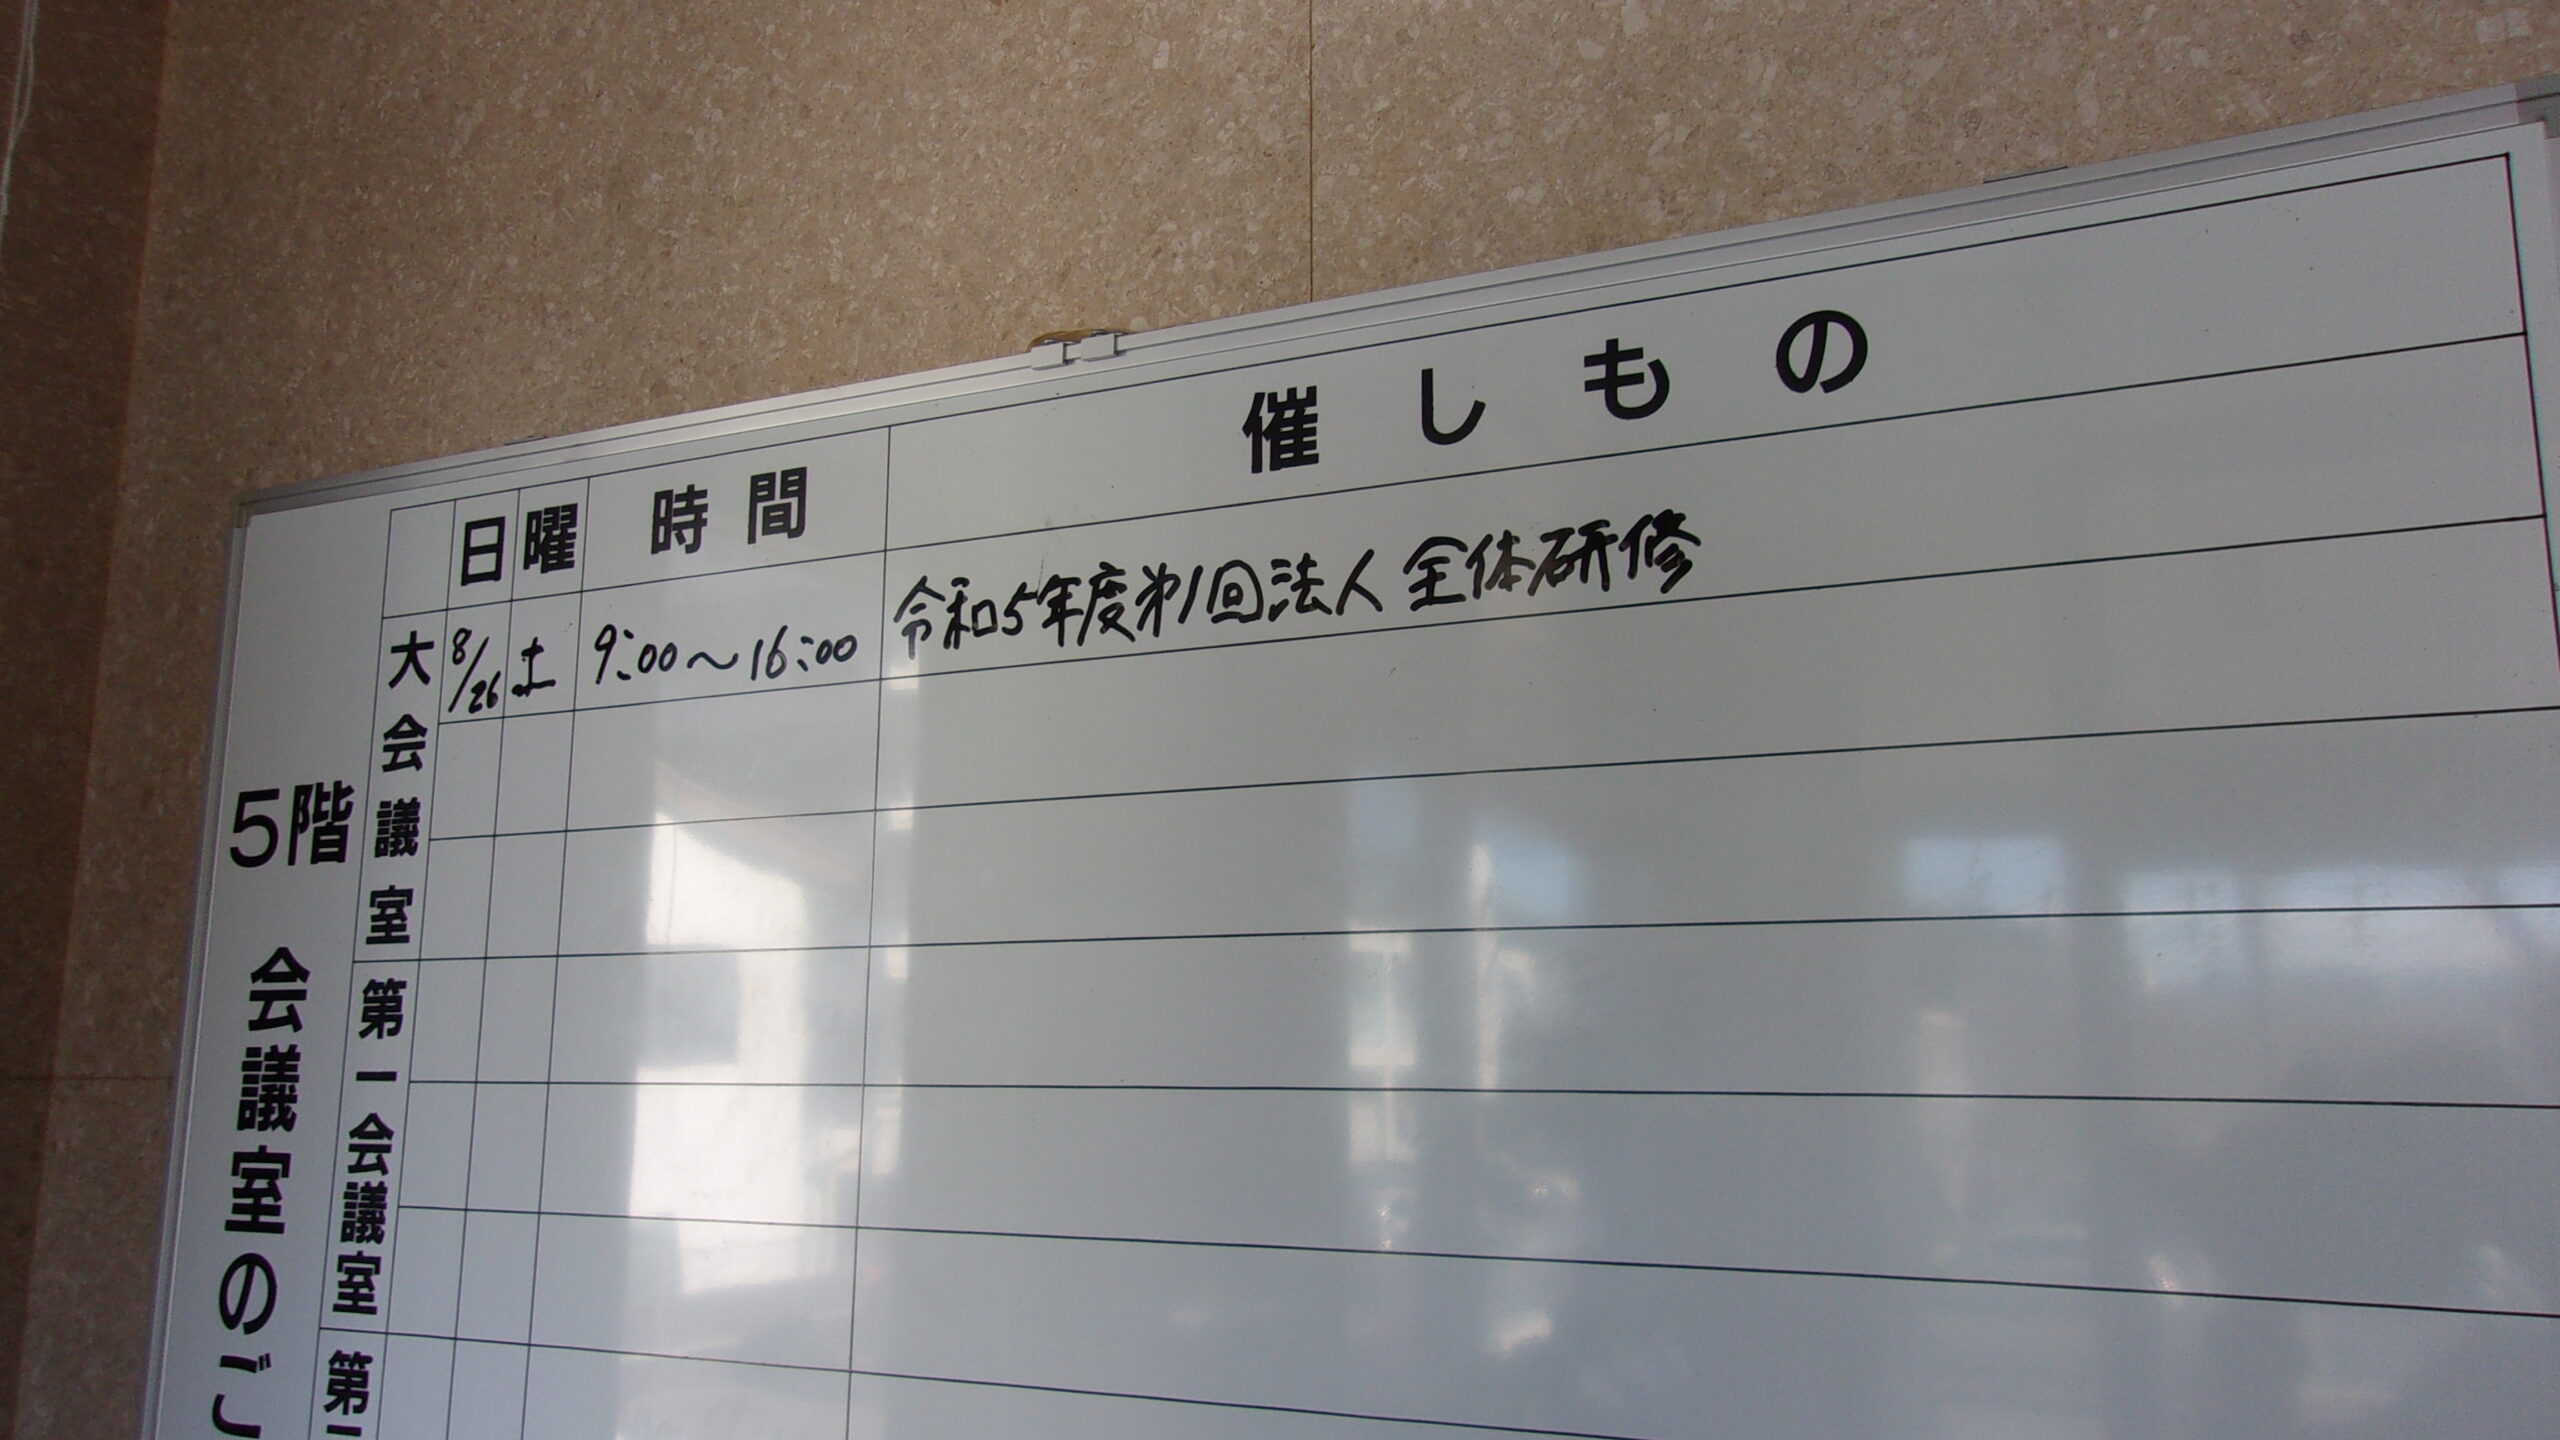 日 曜 時間 催しもの
大会議室 8/26 土 9:00～16:00 令和5年度第1回法人全体研修
5階 会議室のご
第一会議室
第